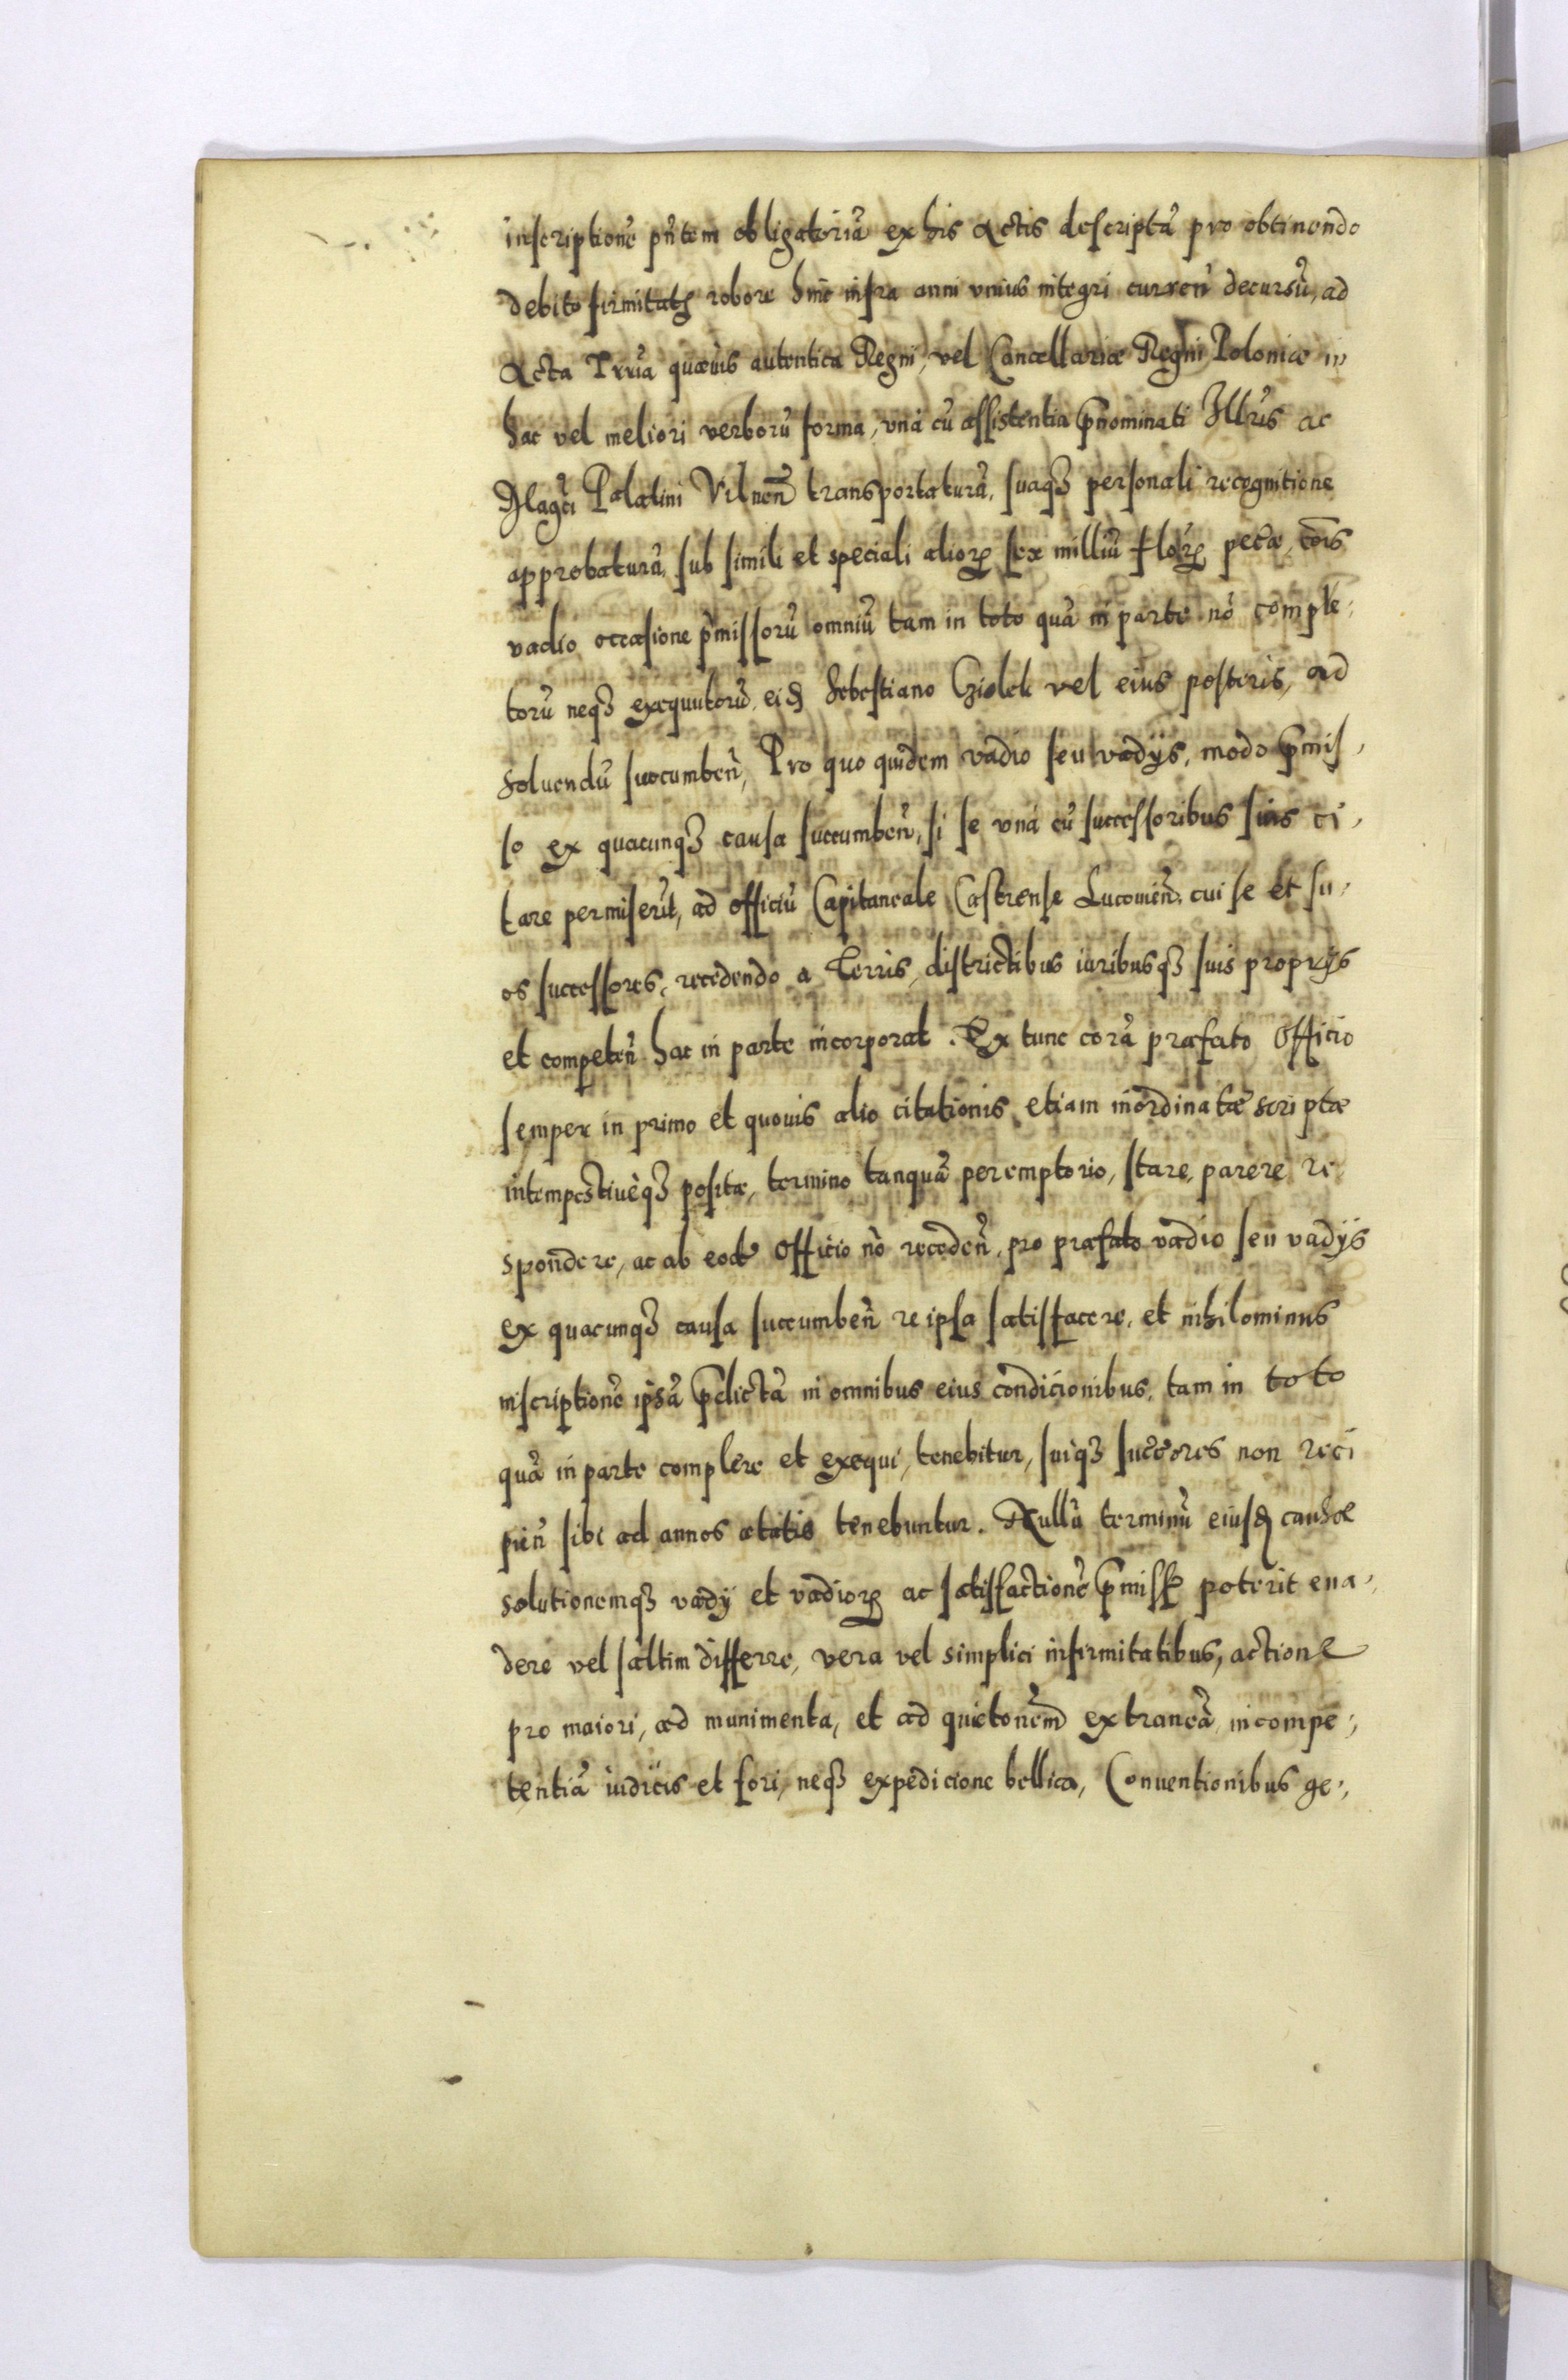 inscriptionẽ pñtem obligatoriã ex his Actis descriptã pro obtinendo
debito firmitatis robore hinc infra anni vnius integri curreñ decursũ, ad
Acta Trria quævis autentica Regni, vel Cancellariæ Regni Poloniæ in
hac vel meliori verborũ forma, vnà cũ assistentia p̃nominati Illr̃is ac
Magci Palatini Vilneñ transportaturũ, suaqȝ personali recognitione
approbaturũ, sub simili et speciali alioꝝ sex milliũ floꝝ pecæ, cõis
vadio occasione p̃missorũ omniũ tam in toto quã in parte nõ comple-
torũ neqȝ exequutorũ, eidẽ Sebastiano Cziolek vel eius posteris, ad
soluendũ succumbeñ, Pro quo quidem vadio seu vadijs, modo p̃mis-
so ex quacunqȝ causa succumbeñ, si se vnà cũ successoribus suis ci-
tare permiserit, ad officiũ Capitaneale Castrense Lucovieñ, cui se et su-
os successores, recedendo a Terris, districtibus iuribusqȝ suis proprijs
et competeñ hac in parte incorporat. Ex tunc corã præfato Officio
semper in primo et quovis alio citationis etiam inordinatæ scriptæ
intempestiuèqȝ positæ, termino tanquã peremptorio, stare, parere re
spondere, ac ab eodẽ Officio nõ recedeñ, pro præfato vadio seu vadijs
ex quacunqȝ causa succumbeñ re ipsa satisfacere, et nihilominus
inscriptionẽ ipsã p̃dictã in omnibus eius condicionibus, tam in toto
quã in parte complere et exequi, tenebitur, suiqȝ succ̃ores non reci
pieñ sibi ad annos ætatis tenebuntur. Nullũ terminũ eiusdẽ causæ
solutionemqȝ vadij et vadioꝝ ac satisfactionẽ p̃missoꝝ poterit eua-
dere vel saltim differre, vera vel simplici infirmitatibus, actione
pro maiori, ad munimenta, et ad quietonẽm extraneã, incompe-
tentiã iudicis et fori, neqȝ expedicione bellica, Conuentionibus ge-